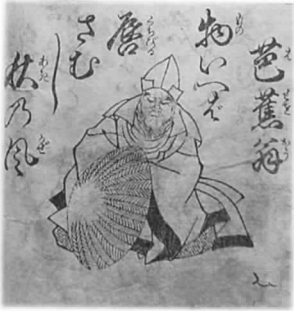 芭蕉翁
物いへば
唇
さむ
し
秋乃風